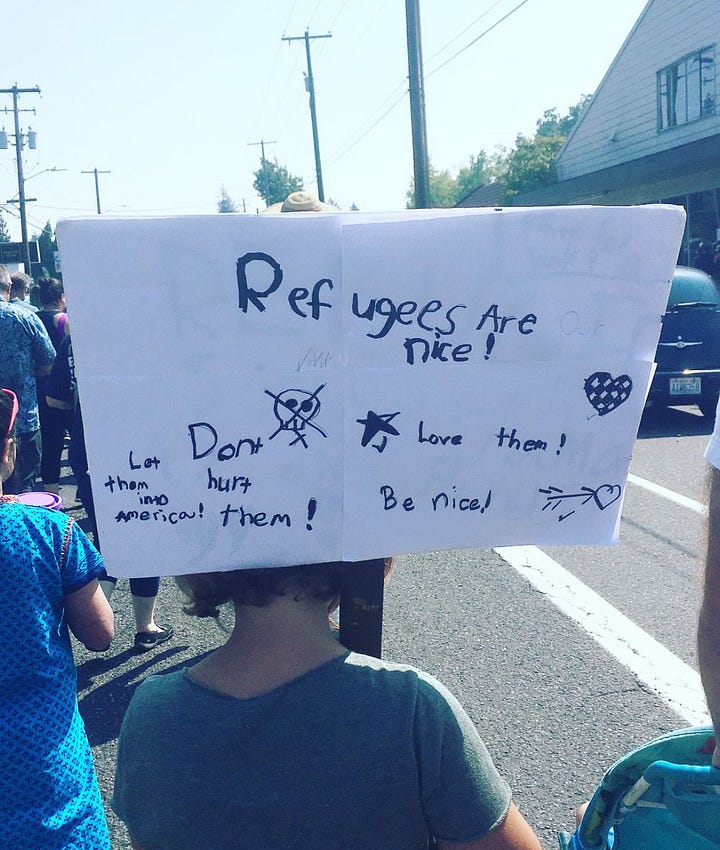 Refugees Are Our
nice!
Dont
hurt
them!
Let
them
into
America!
Love them!
Be nice!